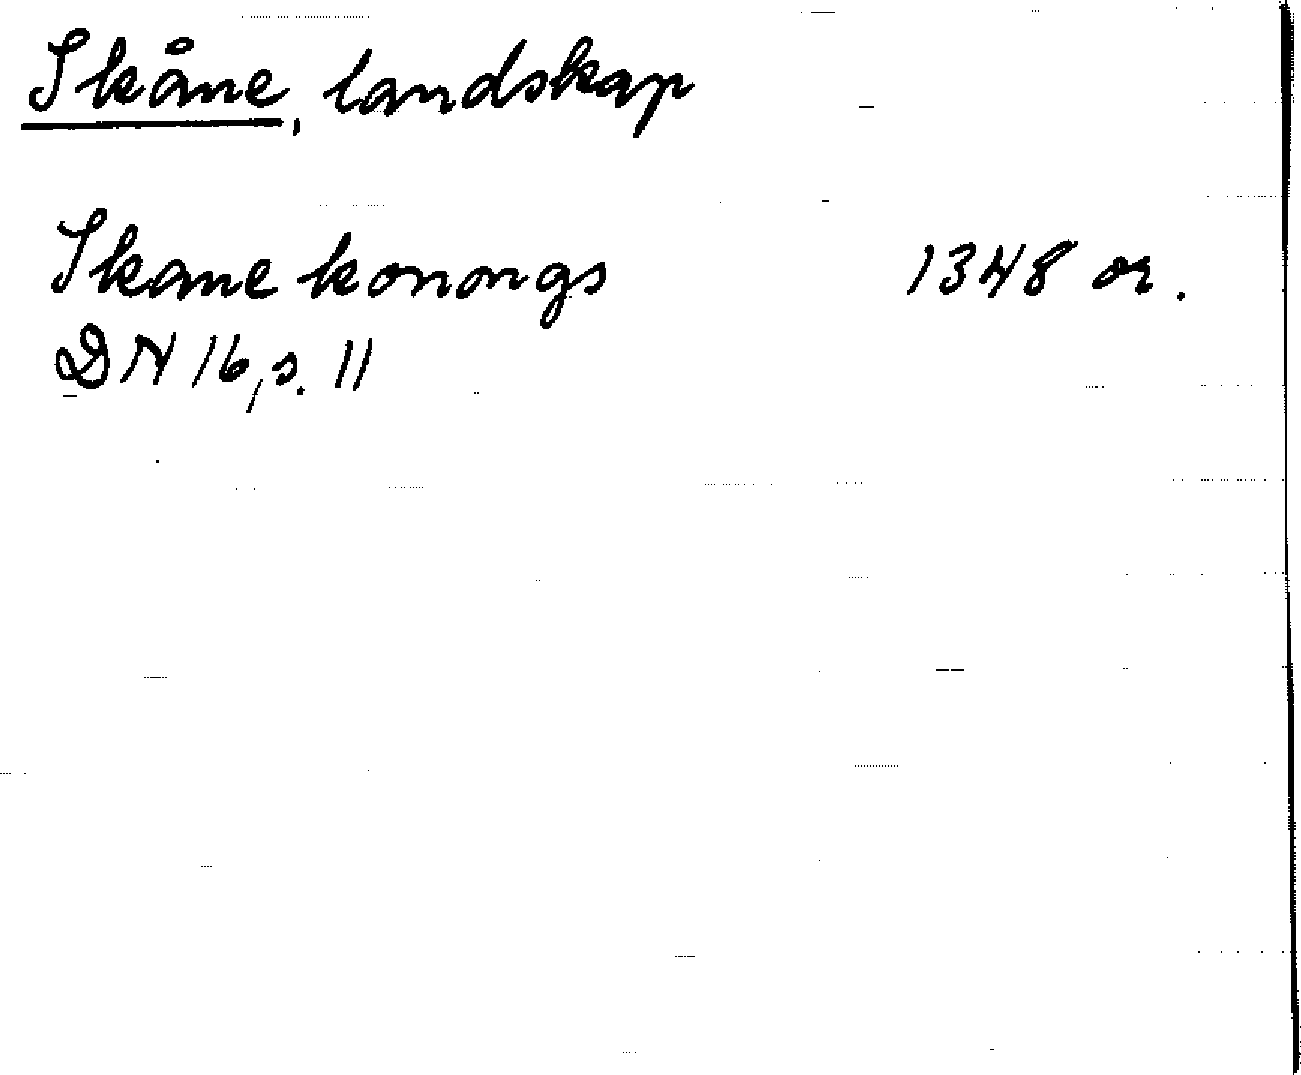 Skåne, landskap
Skane konongs 1348 or.
DN 16, s. 11